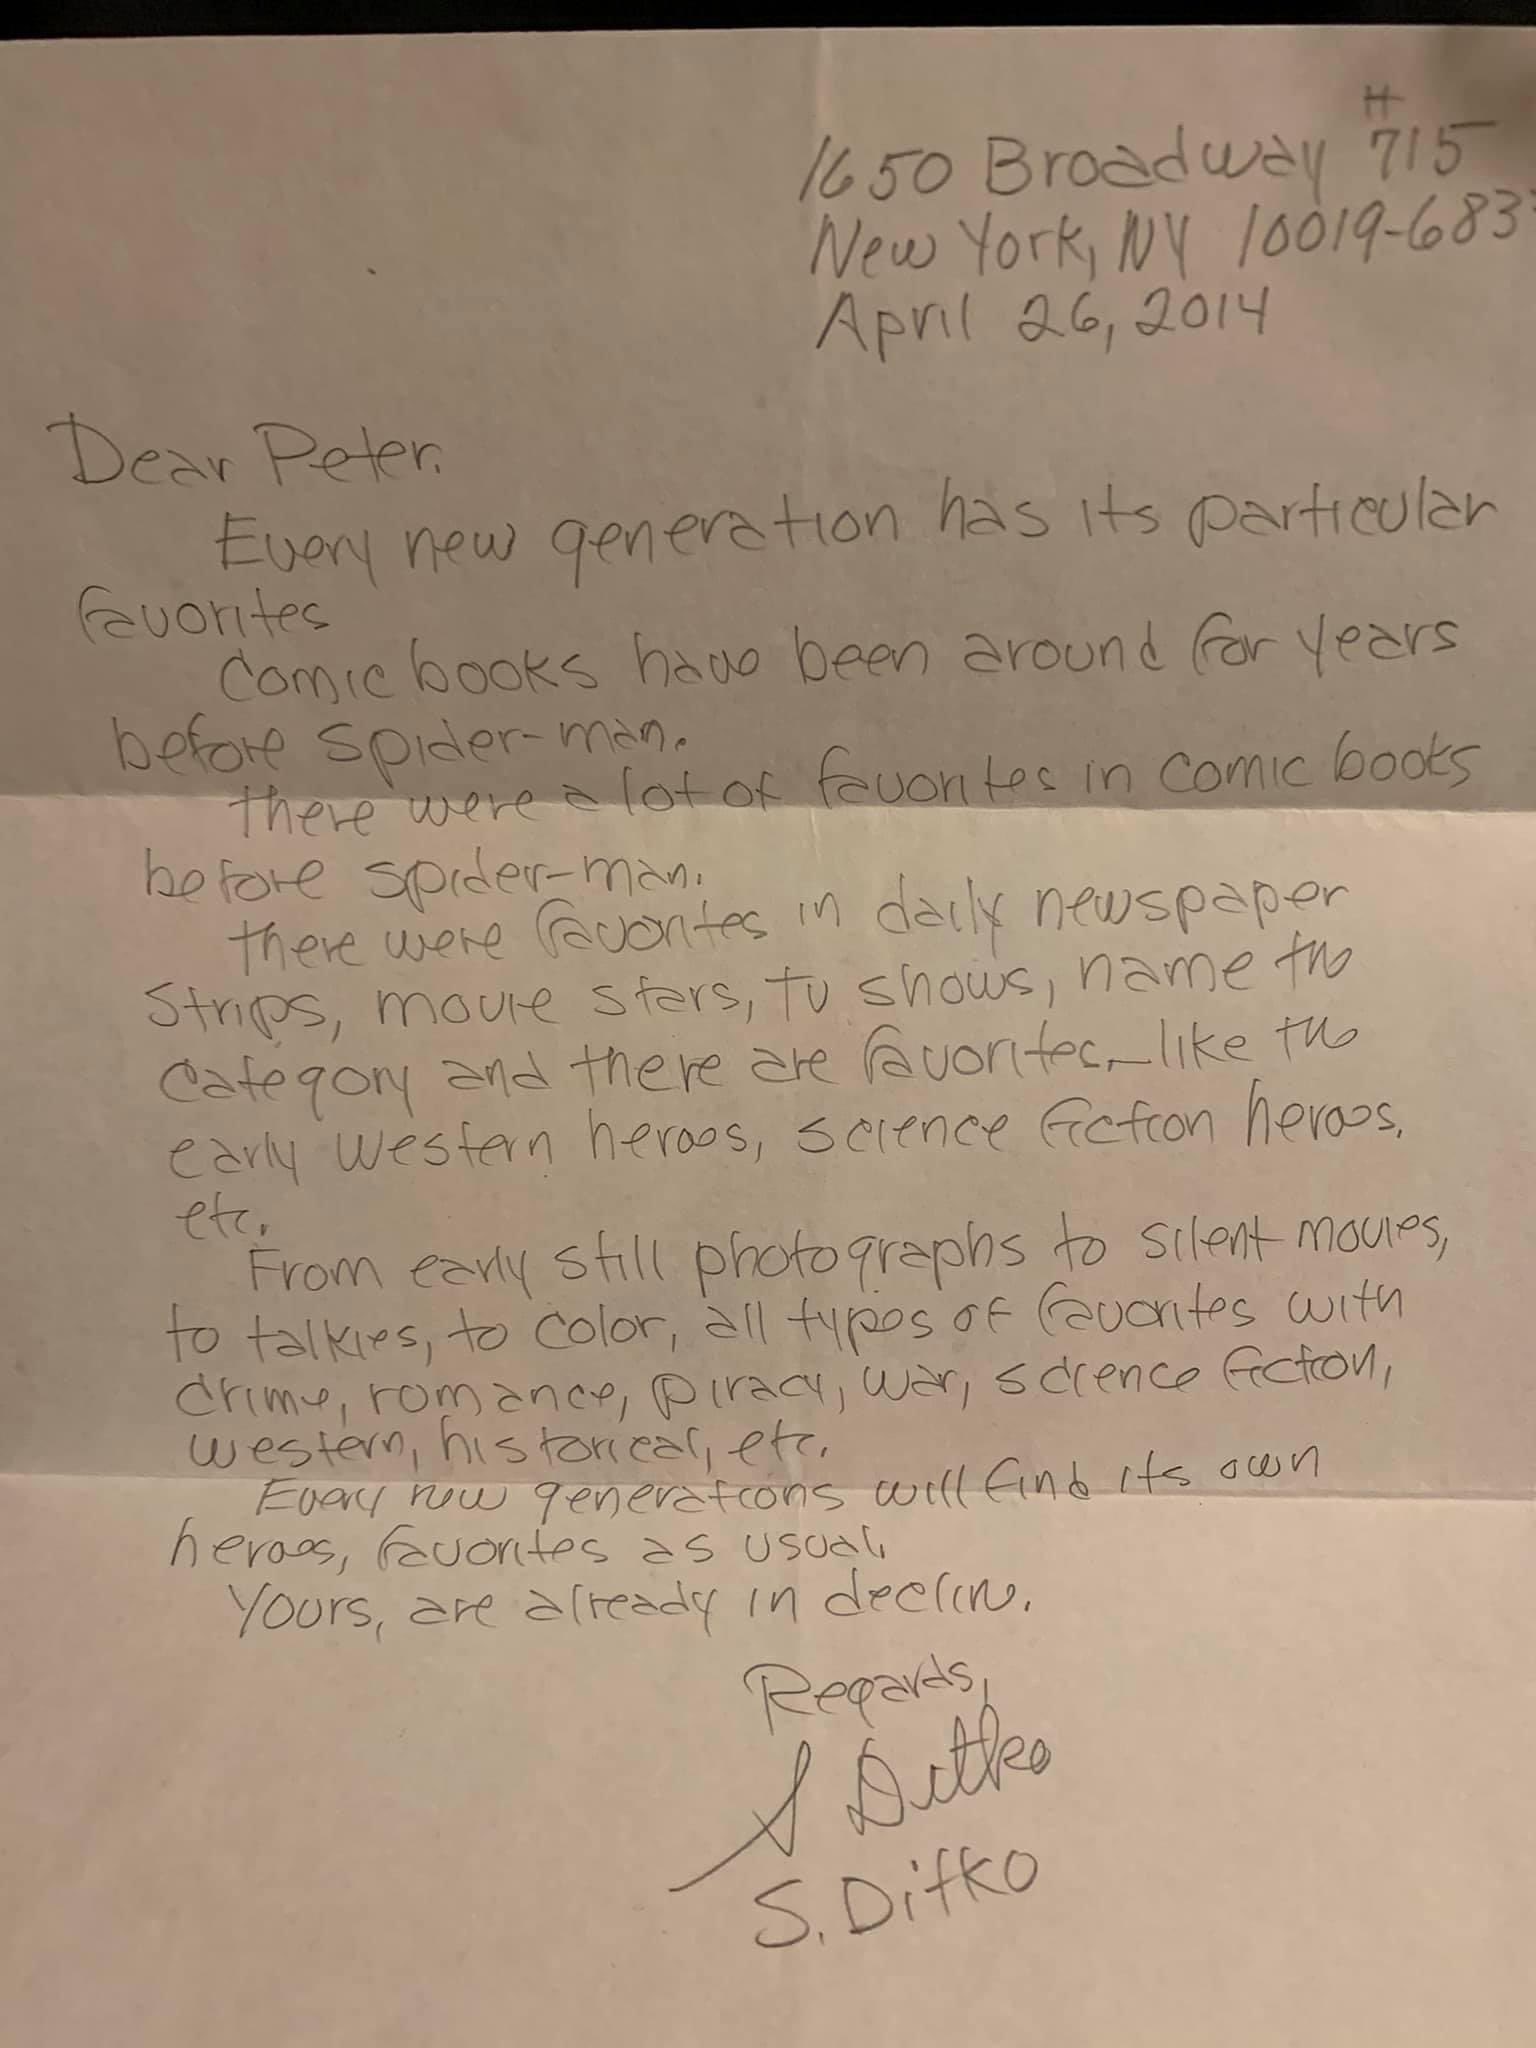 1650 Broadway #715
New York, NY 10019-6833
April 26, 2014
Dear Peter.
Every new generation has its particular
favorites
Comic books have been around for years
before spider-man.
there were a lot of favorites in comic books
before spider-man.
there were favorites in daily newspaper
strips, movie stars, tv shows, name the
category and there are favorites_like the
early western heroes, science fiction heroes.
etc.
From early still photographs to silent movies,
to talkies, to color, all types of favorites with
crime, romance, piracy, war, science fiction,
western, historical, etc.
Every new generations will find its own
heroes, favorites as usual.
Yours, are already in decline.
Regards,
S Ditko
S. Ditko